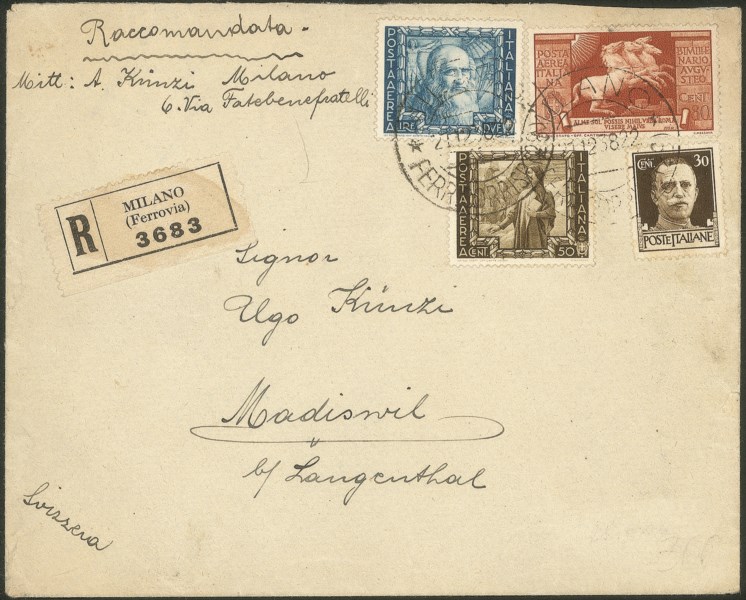 Raccomandata.
Mitt: A. Künzi Milano
6. Via Fatebenefratelli
POSTA AEREA
ITALIANA
LIRE DUE
POSTA
AEREA
ITALIA
NA
BIMILLE
NARIO
AVGV
STEO
CENT
ALME SOL POSSIS NIHIL VRBE ROMA
VISERE MAIVS
POSTA AEREA
ITALIANA
CENT. 50
CENT. 30
POSTE ITALIANE
FERR
R
MILANO
(Ferrovia)
3683
Signor
Ugo Künzi
Madiswil
b/ Langenthal
Svizzera